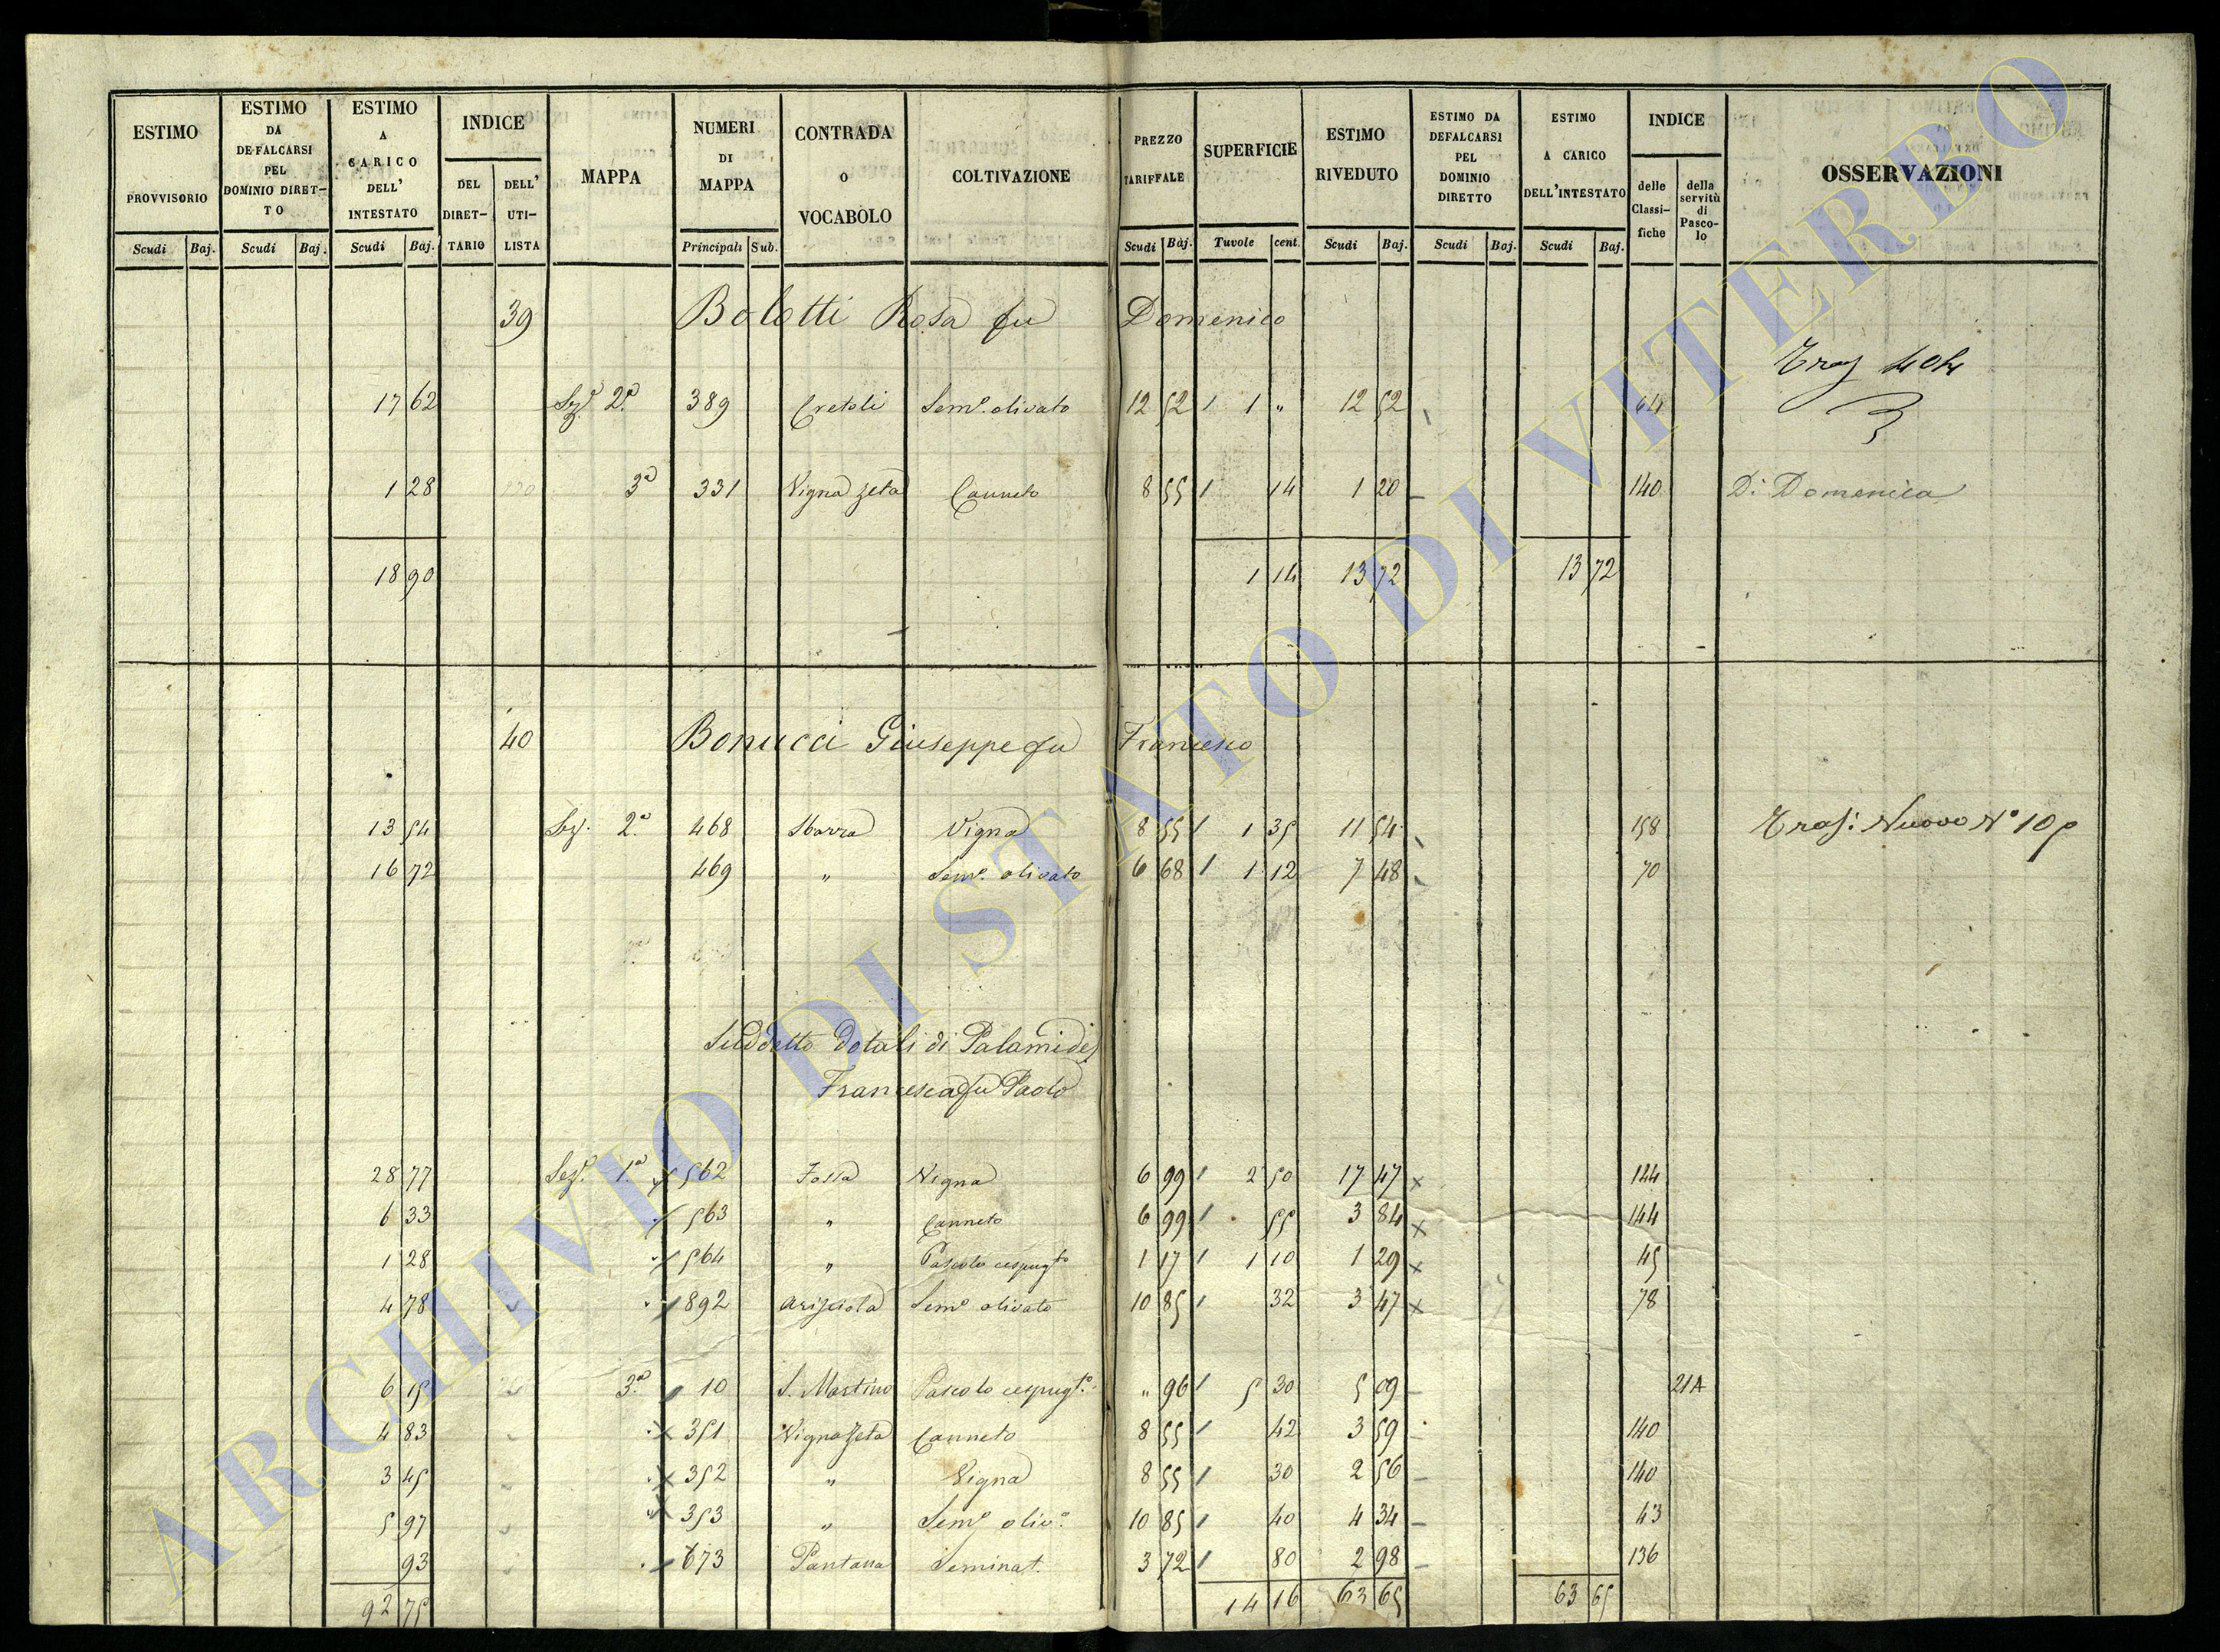 ESTIMO PROVVISORIO Scudi Baj.
ESTIMO DA DEFALCARSI PEL DOMINIO DIRET- TO Scudi Baj.
ESTIMO A CARICO DELL' INTESTATO Scudi Baj.
INDICE DEL DIRET- TARIO DELL' UTI- LISTA
MAPPA
NUMERI DI MAPPA Principali Sub.
CONTRADA O VOCABOLO
COLTIVAZIONE
PREZZO TARIFFALE Scudi Baj.
SUPERFICIE Tavole cent.
ESTIMO RIVEDUTO Scudi Baj.
ESTIMO DA DEFALCARSI PEL DOMINIO DIRETTO Scudi Baj.
ESTIMO A CARICO DELL'INTESTATO Scudi Baj.
INDICE delle Classi- fiche della servitù di Pasco- lo
OSSERVAZIONI
39 Bolotti Rosa fu Domenico
17 62 Sez.e 2.a 389 Cretoli Sem.o olivato 12 52 1 1 " 12 52 64
1 28 3.a 331 Vigna zeta Canneto 8 55 1 14 1 20 140 Di Domenica
18 90 1 14 13 72 13 72
40 Bonucci Giuseppe fu Francesco
13 54 Sez. 2.a 468 Sbarra Vigna 8 55 1 1 35 11 54 158 Trasf: Nuovo N° 10
16 72 469 " Sem.o olivato 6 68 1 1 12 7 48 70
Suddetto Dotali di Palamides
Francesca fu Paolo
28 77 Sez.e 1.a 562 Fossa Vigna 6 99 1 2 50 17 47 144
6 33 563 " Canneto 6 99 1 55 3 84 144
1 28 564 " Pascolo cespug.to 1 17 1 1 10 1 29 45
4 78 892 Arisciola Sem.o olivato 10 85 1 32 3 47 78
6 15 3.a 10 S. Martino Pascolo cespugl.o " 96 1 5 30 5 09 21A
4 83 351 Vigna zeta Canneto 8 55 1 42 3 59 140
3 45 352 " Vigna 8 55 1 30 2 56 140
5 97 353 " Sem.o oliv.o 10 85 1 40 4 34 43
93 673 Pantana Seminat. 3 72 1 80 2 98 136
92 75 14 16 63 65 63 65
ARCHIVIO DI STATO DI VITERBO